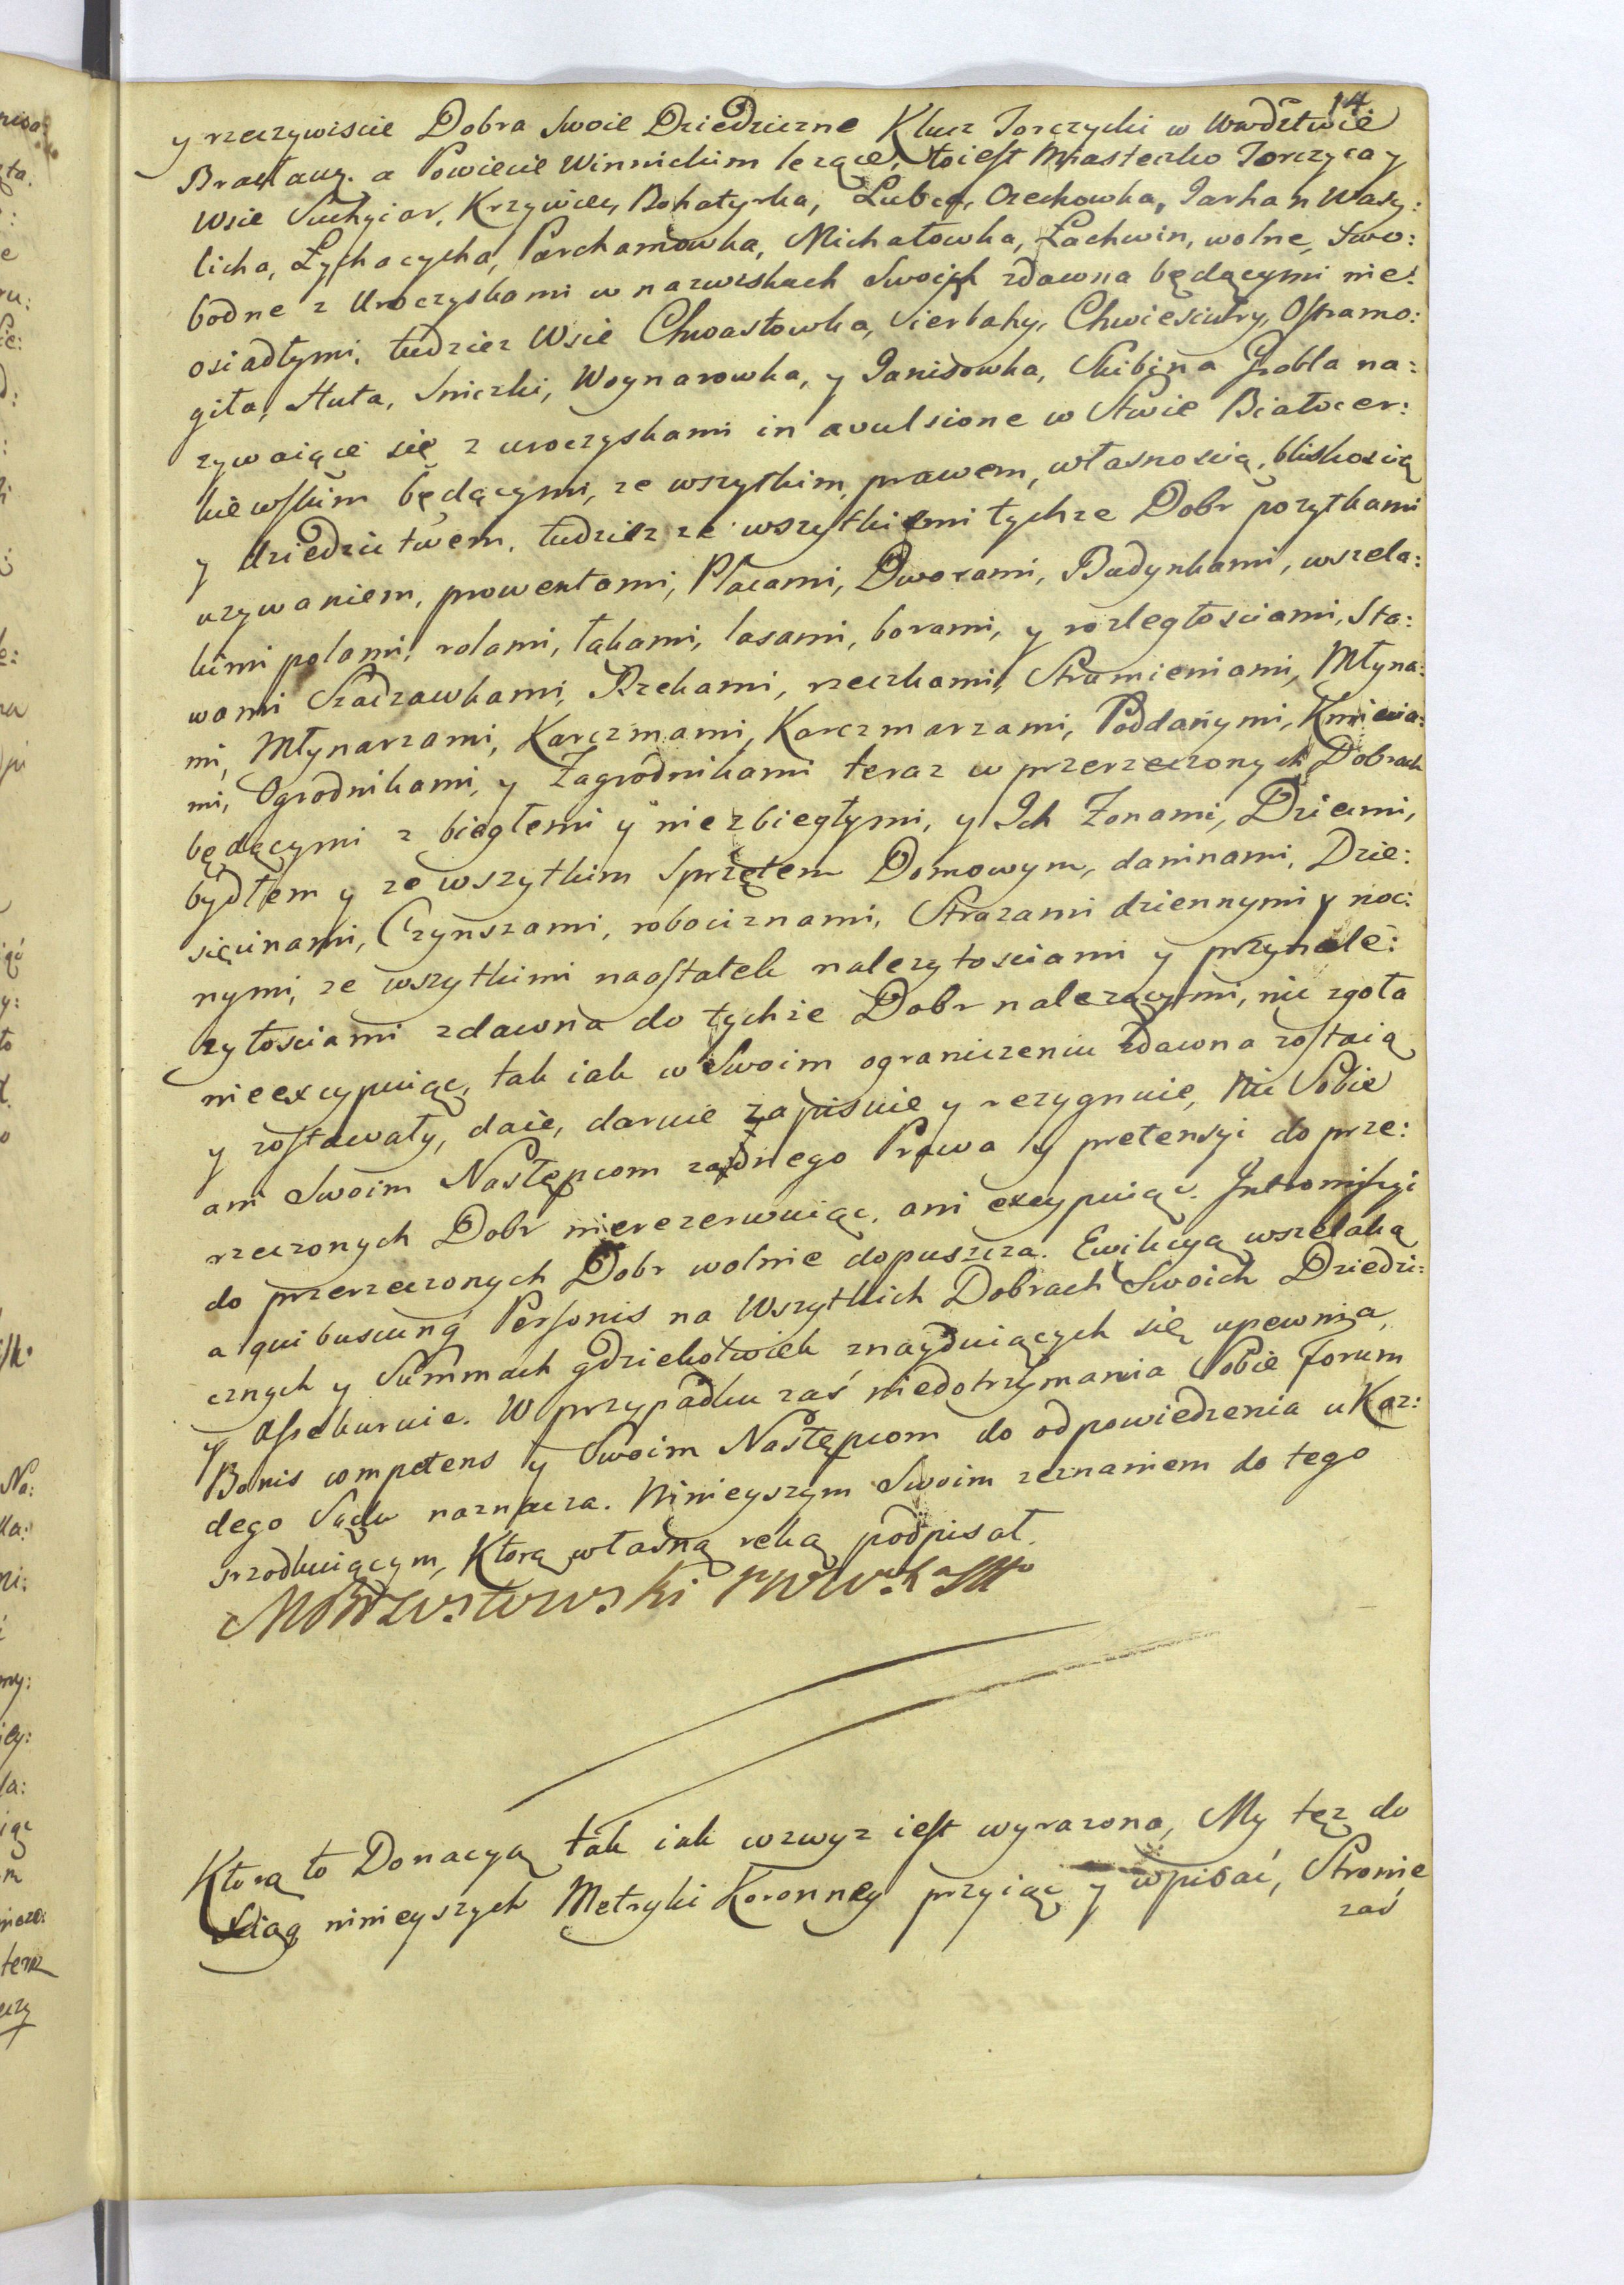 14.
y rzeczywiscie Dobra Swoie Dziedziczne Klucz Torczycki w Wwdztwie
Bracławs. a Powiecie Winnickim lezące, toiest Miasteczko Torczyca y
Wsie Suchyiar, Krzywiec, Bohatyrka, Lubcza, Orechowka, Jarhan Wasy:
licha, Łychaczycha, Parchamowka, Michałowka, Łachwin, wolne, Swo:
bodne z Uroczyskami w nazwiskach Swoich zdawna będącymi nie:
osiadłymi, tudziez Wsie Chwastowka, Sierbahy, Chwiesiury, Ostramo:
giła, Huta, Sniczki, Woynarowka, y Janisowka, Skibina Grobla na:
zywaiące się z uroczyskami in avulsione w Stwie Białocer:
kiewskim będącymi, ze wszytkim prawem, własnoscią, bliskoscią
y dziedzictwem, tudziez ze wszytkiemi tychze Dobr pozytkami
uzywaniem, prowentami, Placami, Dworami, Budynkami, wszela:
kimi polami, rolami, łąkami, lasami, borami, y rozległosciami, Sta:
wami Sadzawkami, Rzekami, rzeczkami, Strumieniami, Młyna:
mi, Młynarzami, Karczmami, Karczmarzami, Poddanymi, Kmiecia:
mi, Ogrodnikami, y Zagrodnikami teraz w przerzeczonych Dobrach
będącymi z biegłemi y niezbiegłymi, y Ich Zonami, Dziecmi,
bydłem y ze wszytkim Sprzętem Domowym, daninami, Dzie:
sięcinami, Czynszami, robociznami, Strazami dziennymi y noc:
nymi, ze wszytkimi naostatek nalezytosciami y przynale:
zytosciami zdawna do tychze Dobr nalezącymi, nic zgoła
nieexcypuiąc, tak iak w Swoim ograniczeniu zdawna zostaią
y zostawały, daie, daruie zapisuie y rezygnuie, Nic Sobie
ani Swoim Następcom zadnego Prawa y pretensyi do prze:
rzeczonych Dobr nierezerwuiąc, ani excypuiąc. Intromissyi
do przerzeczonych Dobr wolnie dopuszcza. Ewikcyą wszelaką
a quibuscunq Personis na Wszytkich Dobrach Swoich Dziedzi:
cznych y Summach gdziekolwiek znayduiących się upewnia,
y assekuruie. W przypadku zaś niedotrzymania Sobie forum
Bonis competens y Swoim Następcom do odpowiedzenia u Kaz:
dego Sądu naznacza. Ninieyszym Swoim zeznaniem do tego
srzodkuiącym, Ktorą własną ręką podpisał.
Ktorą to Donacyą tak iak wzwyz iest wyrazona, My tęz do
Xiąg ninieyszych Metryki Koronney przyiąc y wpisać, Stronie
zaś